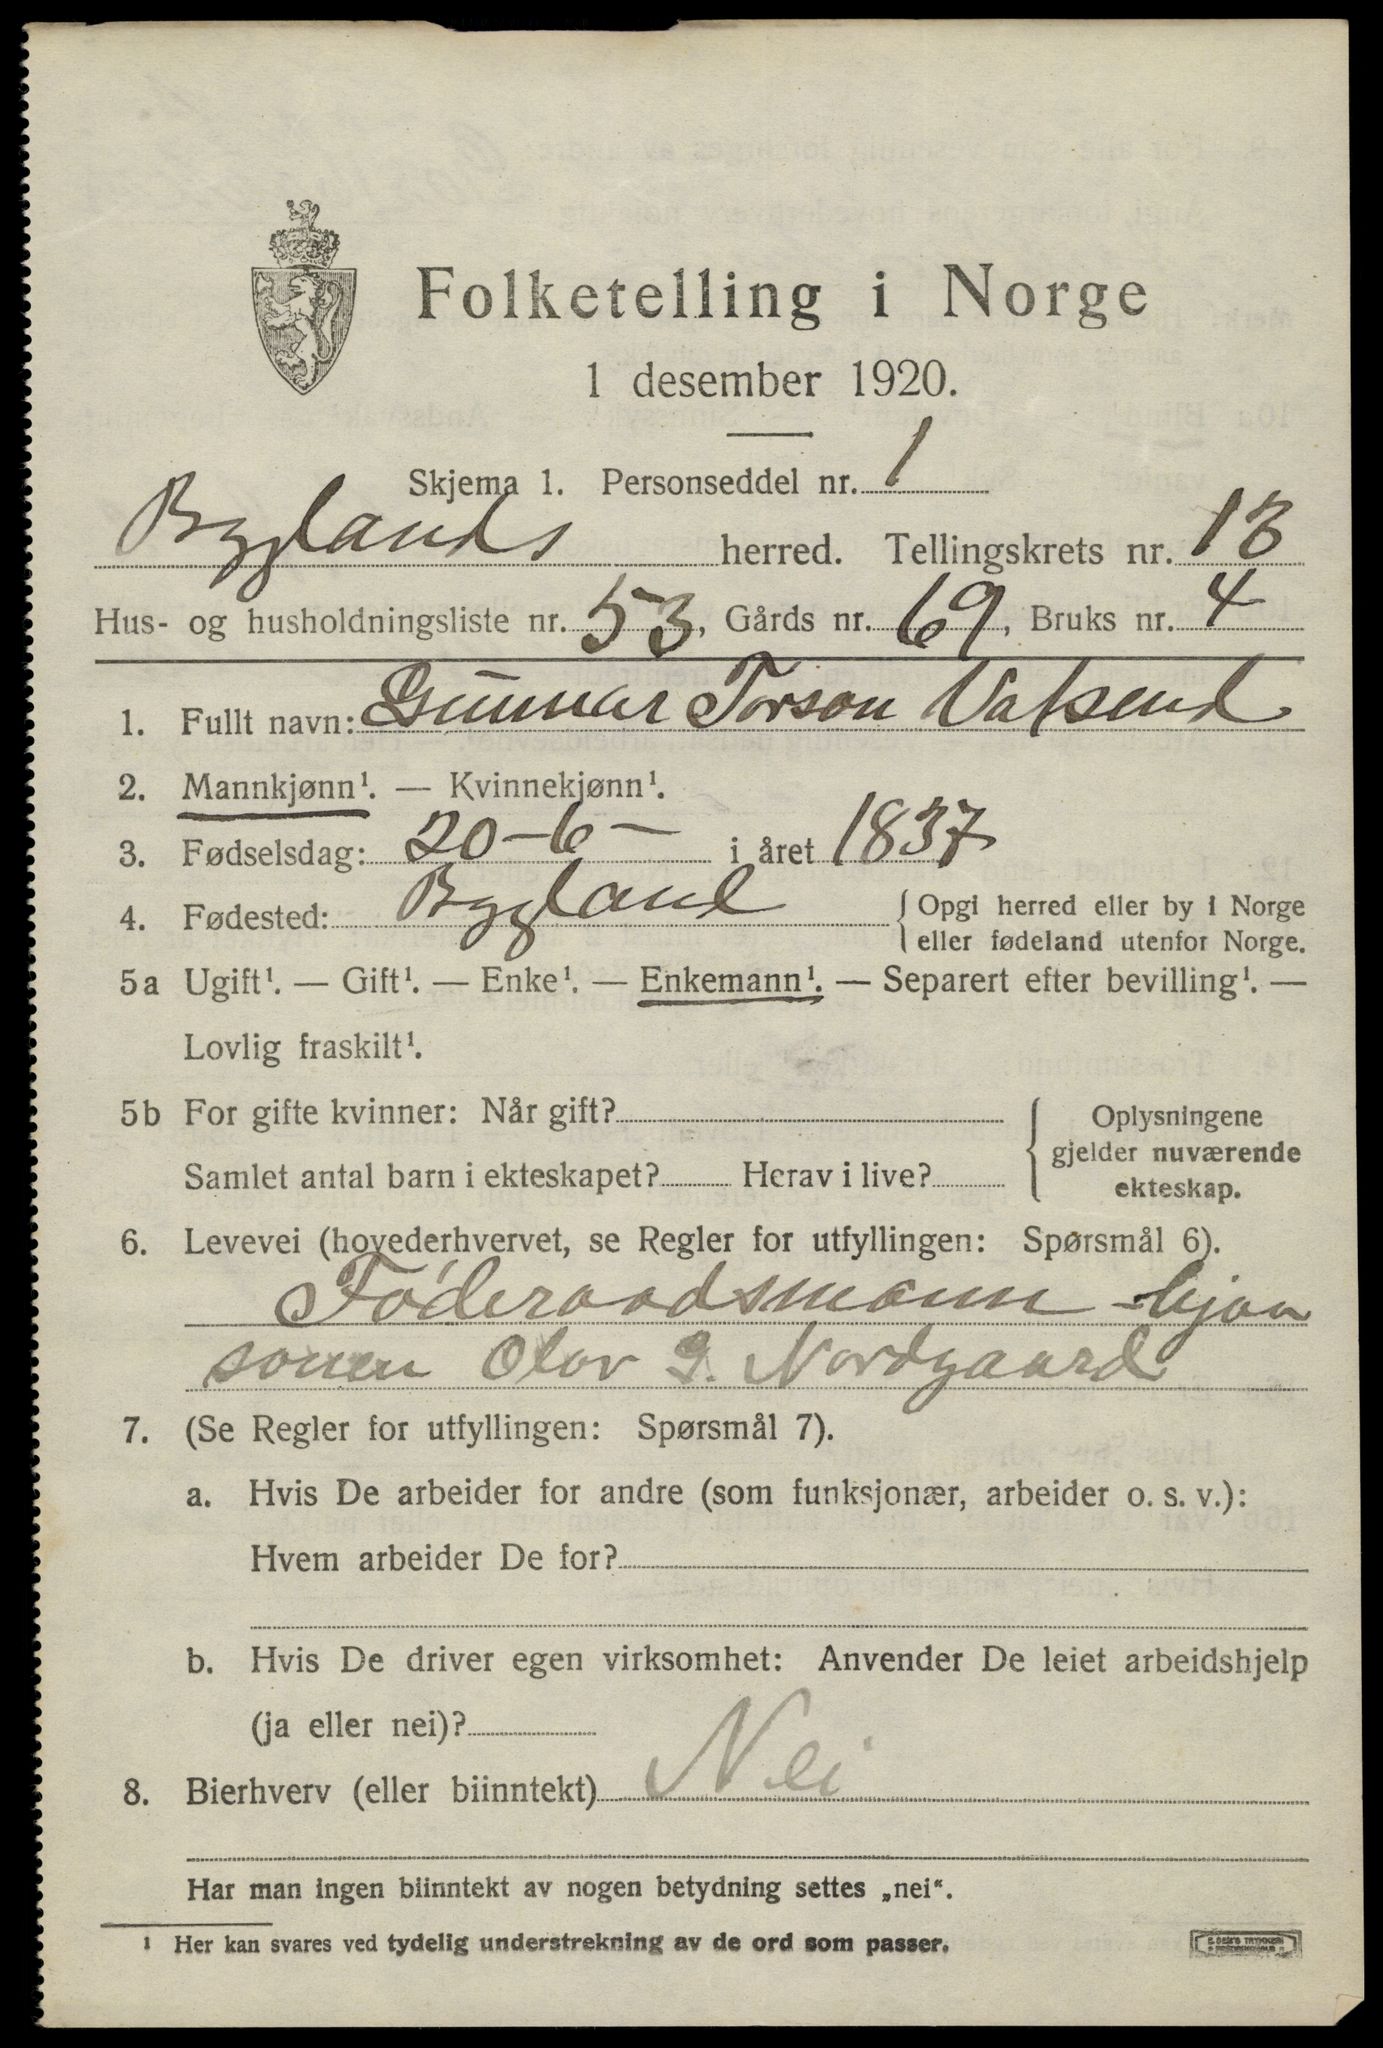 Folketelling i Norge
1 desember 1920.
Skjema 1. Personseddel nr. 1
Byglands herred. Tellingskrets nr. 13
Hus- og husholdningsliste nr. 53, Gårds nr. 69, Bruks nr. 4
1. Fullt navn: Gunnar Torson Vatsend
2. Mannkjønn¹. — Kvinnekjønn¹.
3. Fødselsdag: 20-6- i året 1837
4. Fødested: Bygland { Opgi herred eller by i Norge
eller fødeland utenfor Norge.
5a Ugift¹. — Gift¹. — Enke¹. — Enkemann¹. — Separert efter bevilling¹. —
Lovlig fraskilt¹.
5b For gifte kvinner: Når gift? { Oplysningene
gjelder nuværende
ekteskap.
Samlet antal barn i ekteskapet? Herav i live?
6. Levevei (hovederhvervet, se Regler for utfyllingen: Spørsmål 6).
Föderaadsmann - hjaa
sonen Olav G. Nordgaard
7. (Se Regler for utfyllingen: Spørsmål 7).
a. Hvis De arbeider for andre (som funksjonær, arbeider o. s. v.):
Hvem arbeider De for?
b. Hvis De driver egen virksomhet: Anvender De leiet arbeidshjelp
(ja eller nei)?
8. Bierhverv (eller biinntekt) Nei
Har man ingen biinntekt av nogen betydning settes „nei“.
¹ Her kan svares ved tydelig understrekning av de ord som passer.